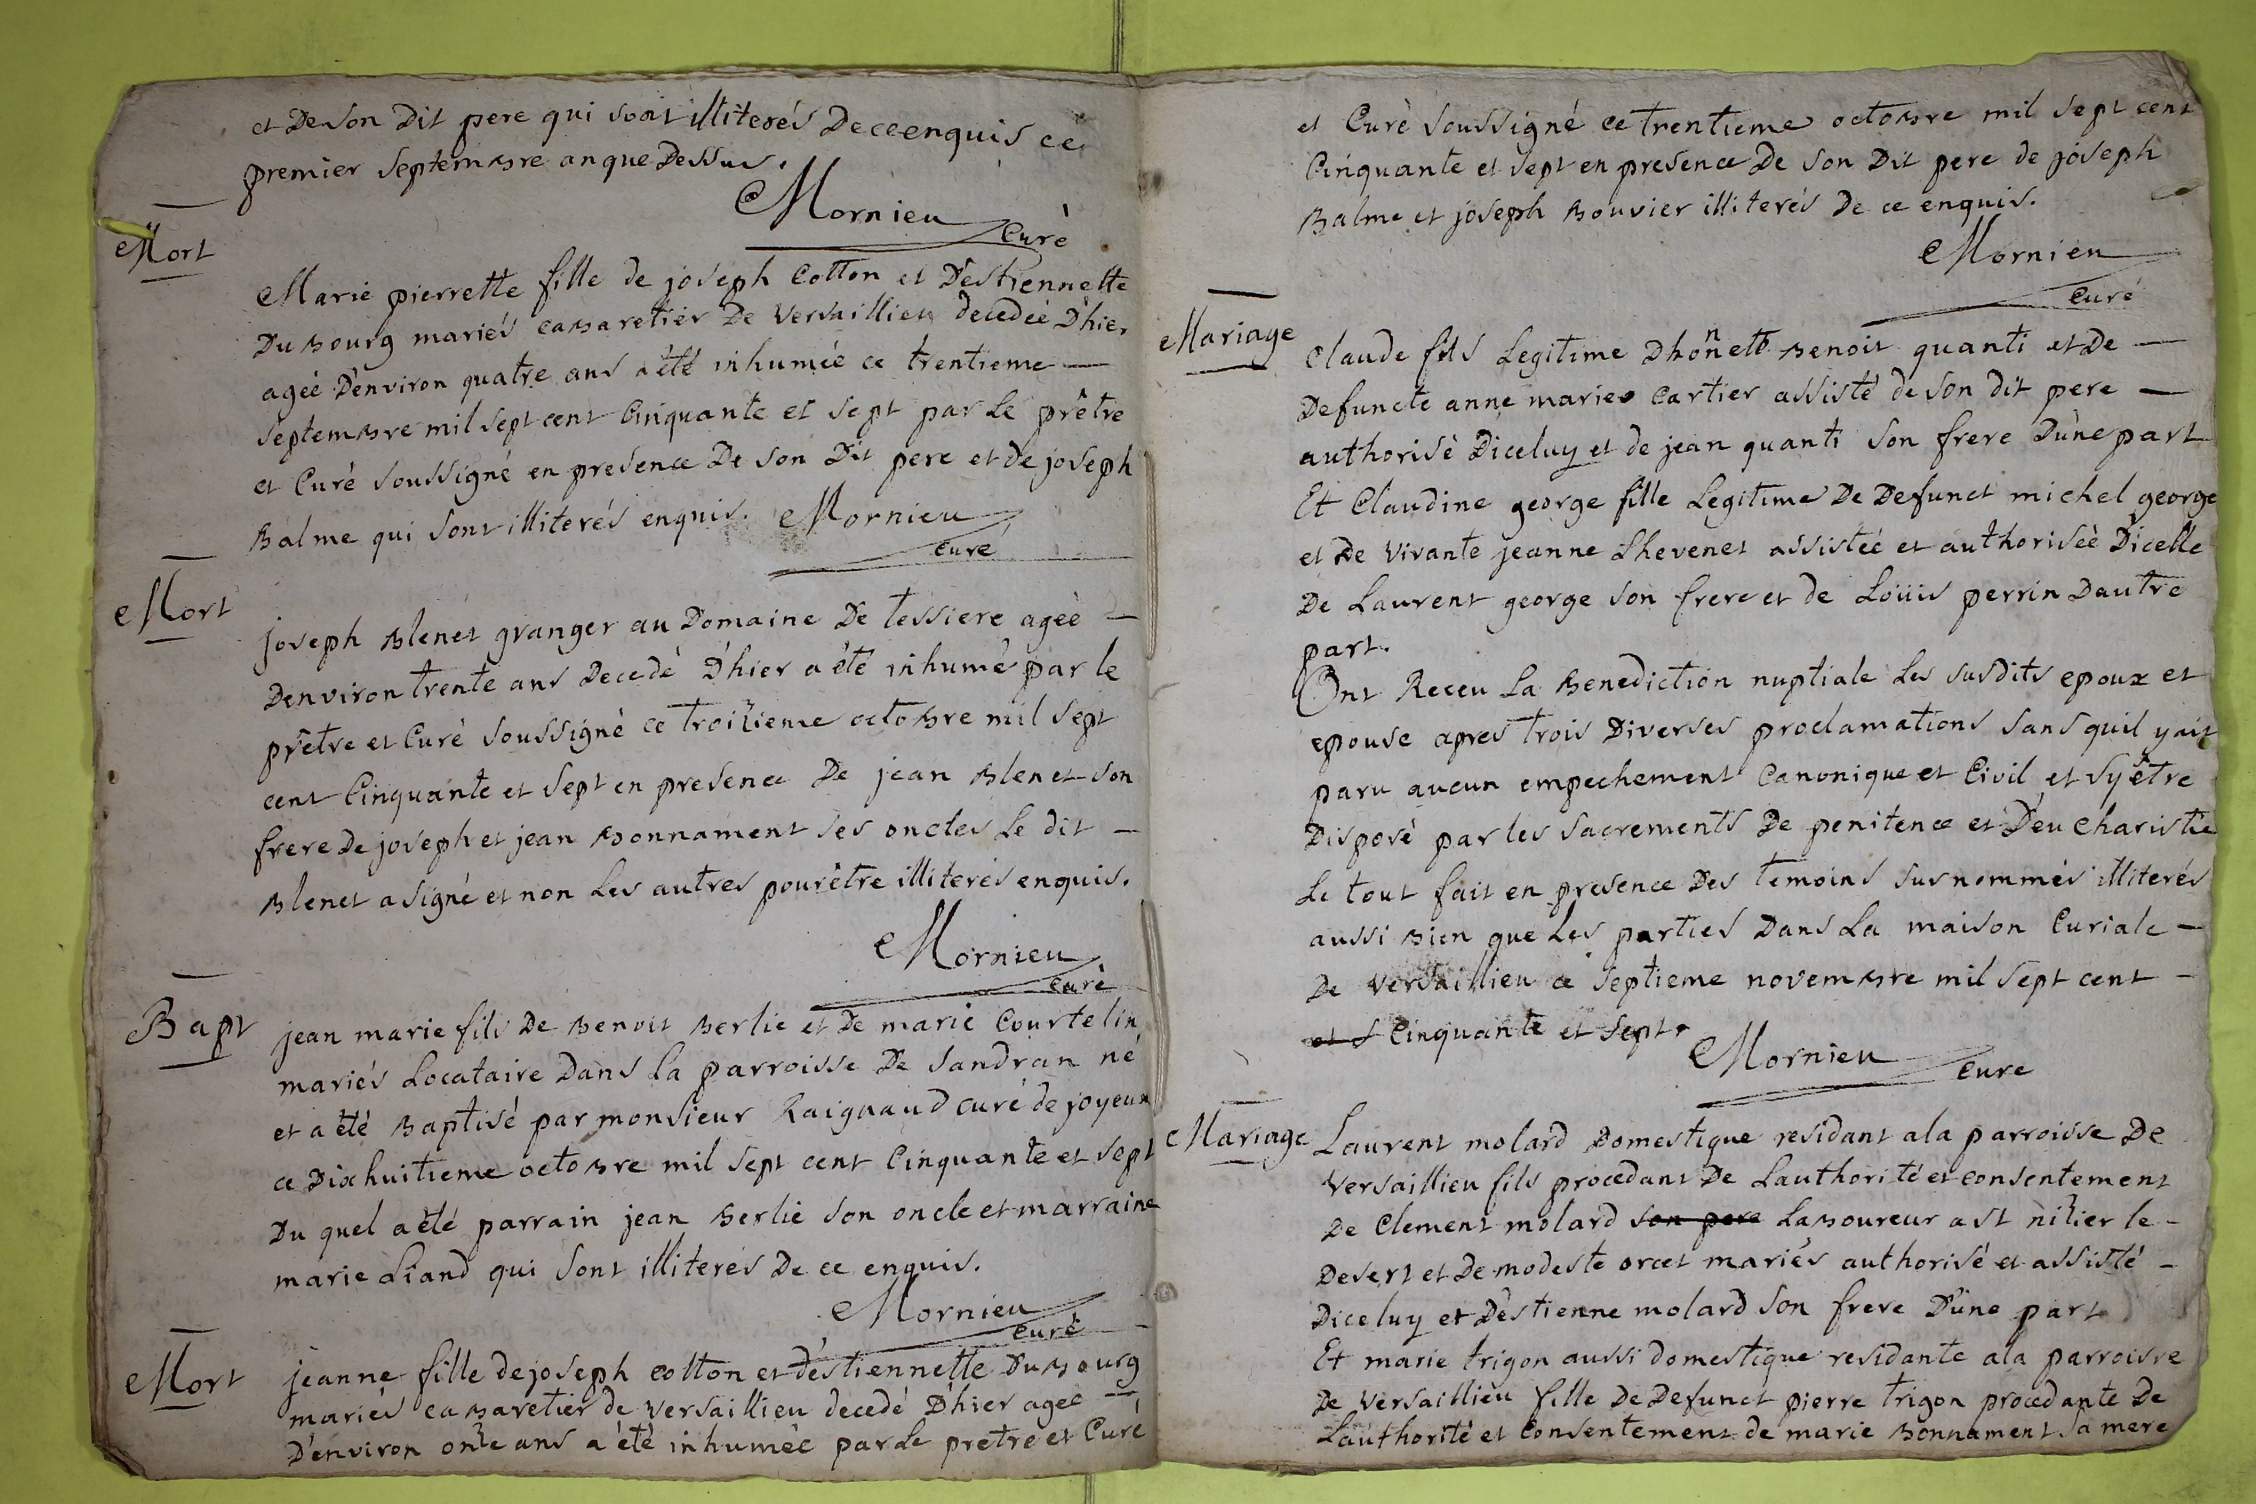 et De son Dit pere qui sont illiterés De ce enquis ce
premier septembre an que Dessus.
Mornieu
Curé
Mort
Marie pierrette fille de joseph Cotton et D'estiennette
Dubourg mariés cabaretier De Versaillieu decedée D'hier
agée D'environ quatre ans a été inhumée ce trentieme —
septembre mil sept cent Cinquante et sept par Le prêtre
et Curé soussigné en presence De son Dit pere et de joseph
Balme qui sont illiterés enquis. Mornieu
curé
Mort
joseph Blenet granger au Domaine De tessiere ageé —
Denviron trente ans Decedé D'hier a été inhumé par le
prêtre et Curé soussigné ce troizieme octobre mil sept
cent Cinquante et sept en presence De jean Blenet son
frere De joseph et jean Bonnament ses oncles Le dit —
Blenet a signé et non Les autres pour être illiterés enquis.
Mornieu
curé
Bapt
jean marie fils De Benoit Berlie et De marie Courtelin
mariés Locataire Dans La parroisse De Sandran né
et a été Baptisé par monsieur Raignaud curé de joyeux
ce Dixhuitieme octobre mil sept cent Cinquante et sept
Du quel a été parrain jean Berlie son oncle et marraine
marie Liand qui sont illiterés De ce enquis.
Mornieu
curé
Mort
jeanne fille de joseph cotton et d'estiennette Dubourg
mariés cabaretier de Versaillieu decedé D'hier ageé —
D'environ onze ans a été inhumée par Le pretre et Curé
et Curé soussigné ce trentieme octobre mil sept cent
Cinquante et sept en presence De son Dit pere de joseph
Balme et joseph Bouvier illiterés De ce enquis.
Mornieu
Curé
Mariage
Claude fils Legitime Dhonnete Benoit quanti et De —
Defuncte anne marie Cartier assisté de son dit pere —
authorisé Diceluy et de jean quanti son frere D'une part
Et Claudine george fille Legitime De Defunct michel george
et De Vivante jeanne Chevenet assistée et authoriseé Dicelle
De Laurent george son frere et de Loüis perrin Dautre
part.
Ont Receu La Benediction nuptiale Les susdits epoux et
epouse apres trois Diverses proclamations sans quil y ait
paru aucun empechement Canonique et Civil et s'y être
Disposé par les sacrements De penitence et D'eucharistie
Le tout fait en presence Des temoins susnommés illiterés
aussi Bien que Les parties Dans La maison Curiale —
De Versaillieu ce septieme novembre mil sept cent —
et s Cinquante et sept.
Mornieu
Curé
Mariage
Laurent molard Domestique residant a la parroisse De
Versaillieu fils procedant De Lauthorité et consentement
De Clement molard son pere Laboureur a st nizier le -
Desert et De modeste orcet mariés authorisé et assisté -
Diceluy et D'estienne molard son frere D'une part
Et marie trigon aussi domestique residante a la parroisse
De Versaillieu fille De Defunct pierre trigon procedante De
Lauthorité et Consentement de marie Bonnament sa mere